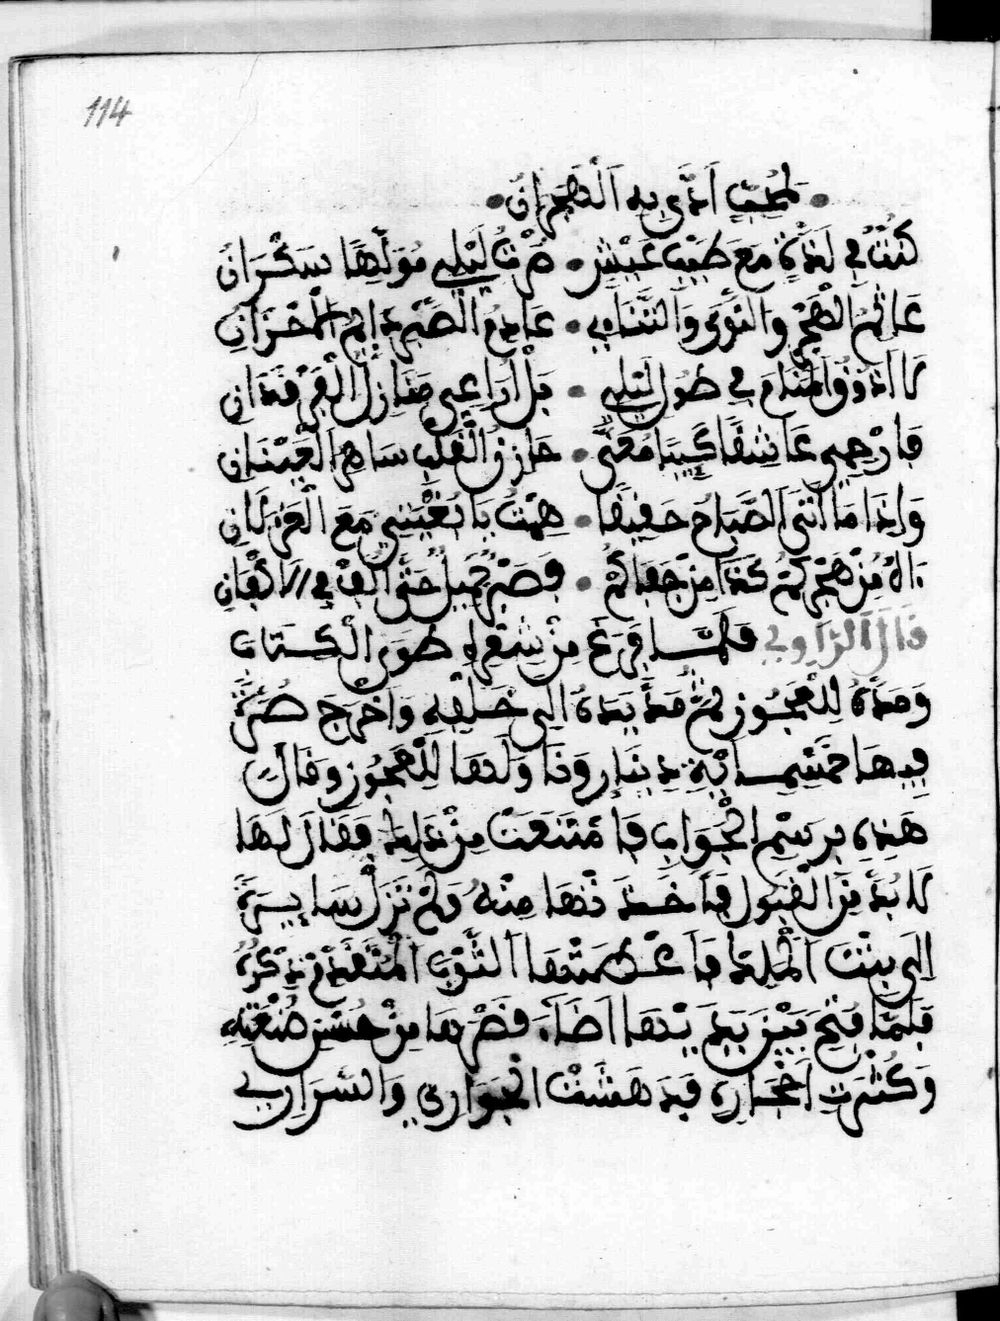 114
لمحب اذى به الهجران
كنت في لذة مع طيب عيش • صرت ليلي مولها سكران
عالم الهجر والنوى والتناءي • عادم الصبر دايم الاحزان
لا اذوق المنام في طول ليلي • بل اراعي منازل الفرقدان
فارحمي عاشقا كييبا معنى • حازن القلب ساهر العينان
واذا ما اتى الصباح حقيقا • همت يا بغيتي مع الغزلان
اه من هجركم كذا من جفاكم • فصبر جميل حتى الف في الاكفان
قال الراوي فلما فرغ من شعره طوى الكتاب
ومده للعجوز ثم مد يده الى خلفه واخرج صرة
فيها خمسماية دينار وناولها للعجوز وقال
هذه برسم الجواب فامتنعت من ذلك فقال لها
لا بد من القبول فاخذتها منه ولم تزل سايرة
الى بنت الملك فاعطتها الثوب المتقدم ذكره
فلما فتح بين يديها اضاء قصرها من حسن صنعته
وكثرت احجاره فدهشت الجواري والسراري